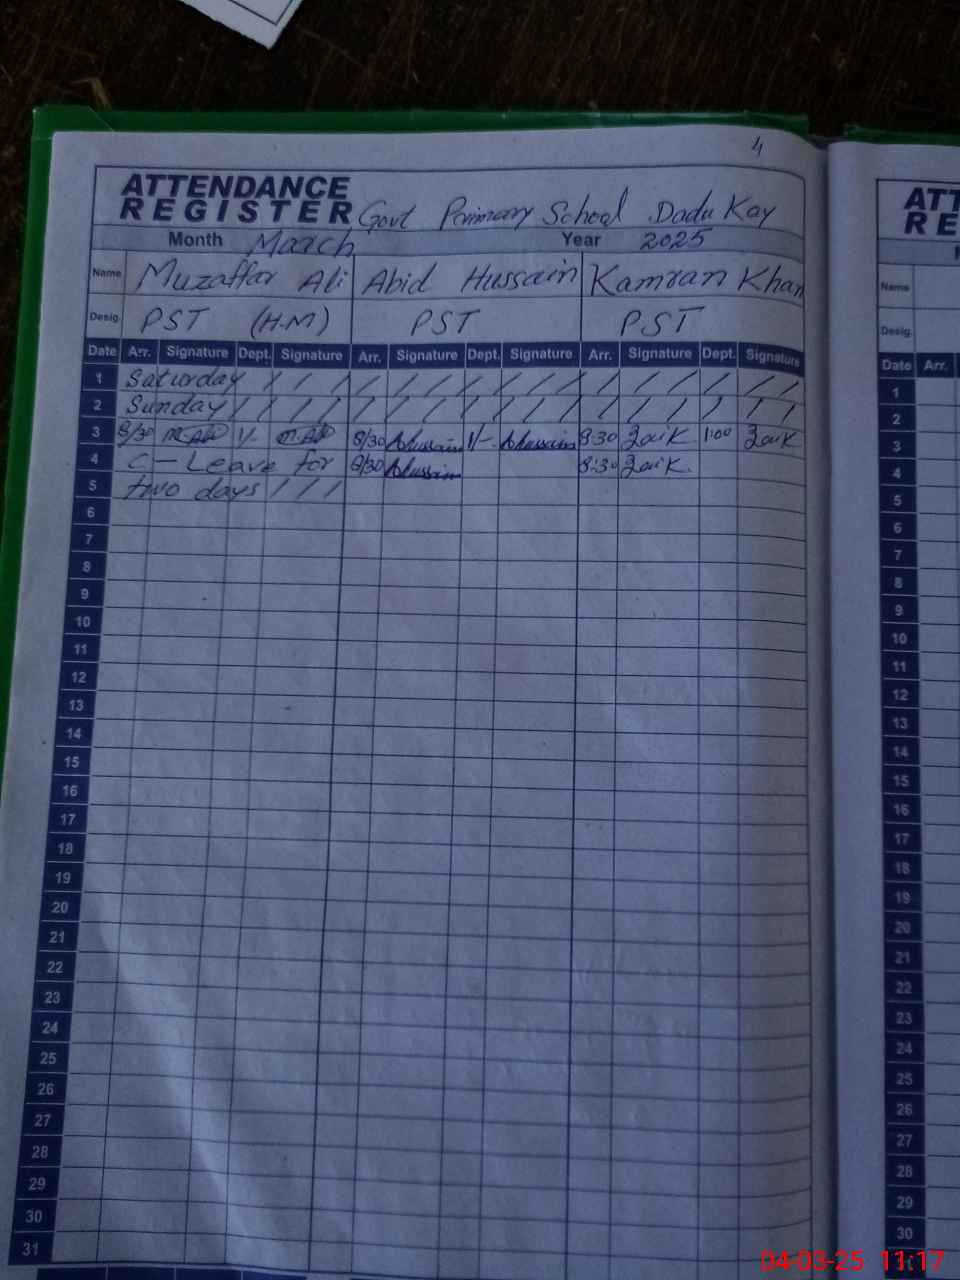 4
ATTENDANCE
REGISTER Govt Primary School Dadu Kay
Month March Year 2025
Name Muzaffar Ali Abid Hussain Kamran Khan
Desig. PST (H.M) PST PST
Date Arr. Signature Dept. Signature Arr. Signature Dept. Signature Arr. Signature Dept. Signature
1 Saturday / / / / / / / / / / / / / / / / /
2 Sunday / / / / / / / / / / / / / / / / /
3 8/30 M.Ali 1/- M.Ali 8/30 Ahussain 1/- Ahussain 8:30 1:00
4 C - Leave for 8/30 Ahussain 8:30
5 two days / / /
6
7
8
9
10
11
12
13
14
15
16
17
18
19
20
21
22
23
24
25
26
27
28
29
30
31
ATT
RE
Name
Desig.
Date Arr.
1
2
3
4
5
6
7
8
9
10
11
12
13
14
15
16
17
18
19
20
21
22
23
24
25
26
27
28
29
30
04-03-25 11:17